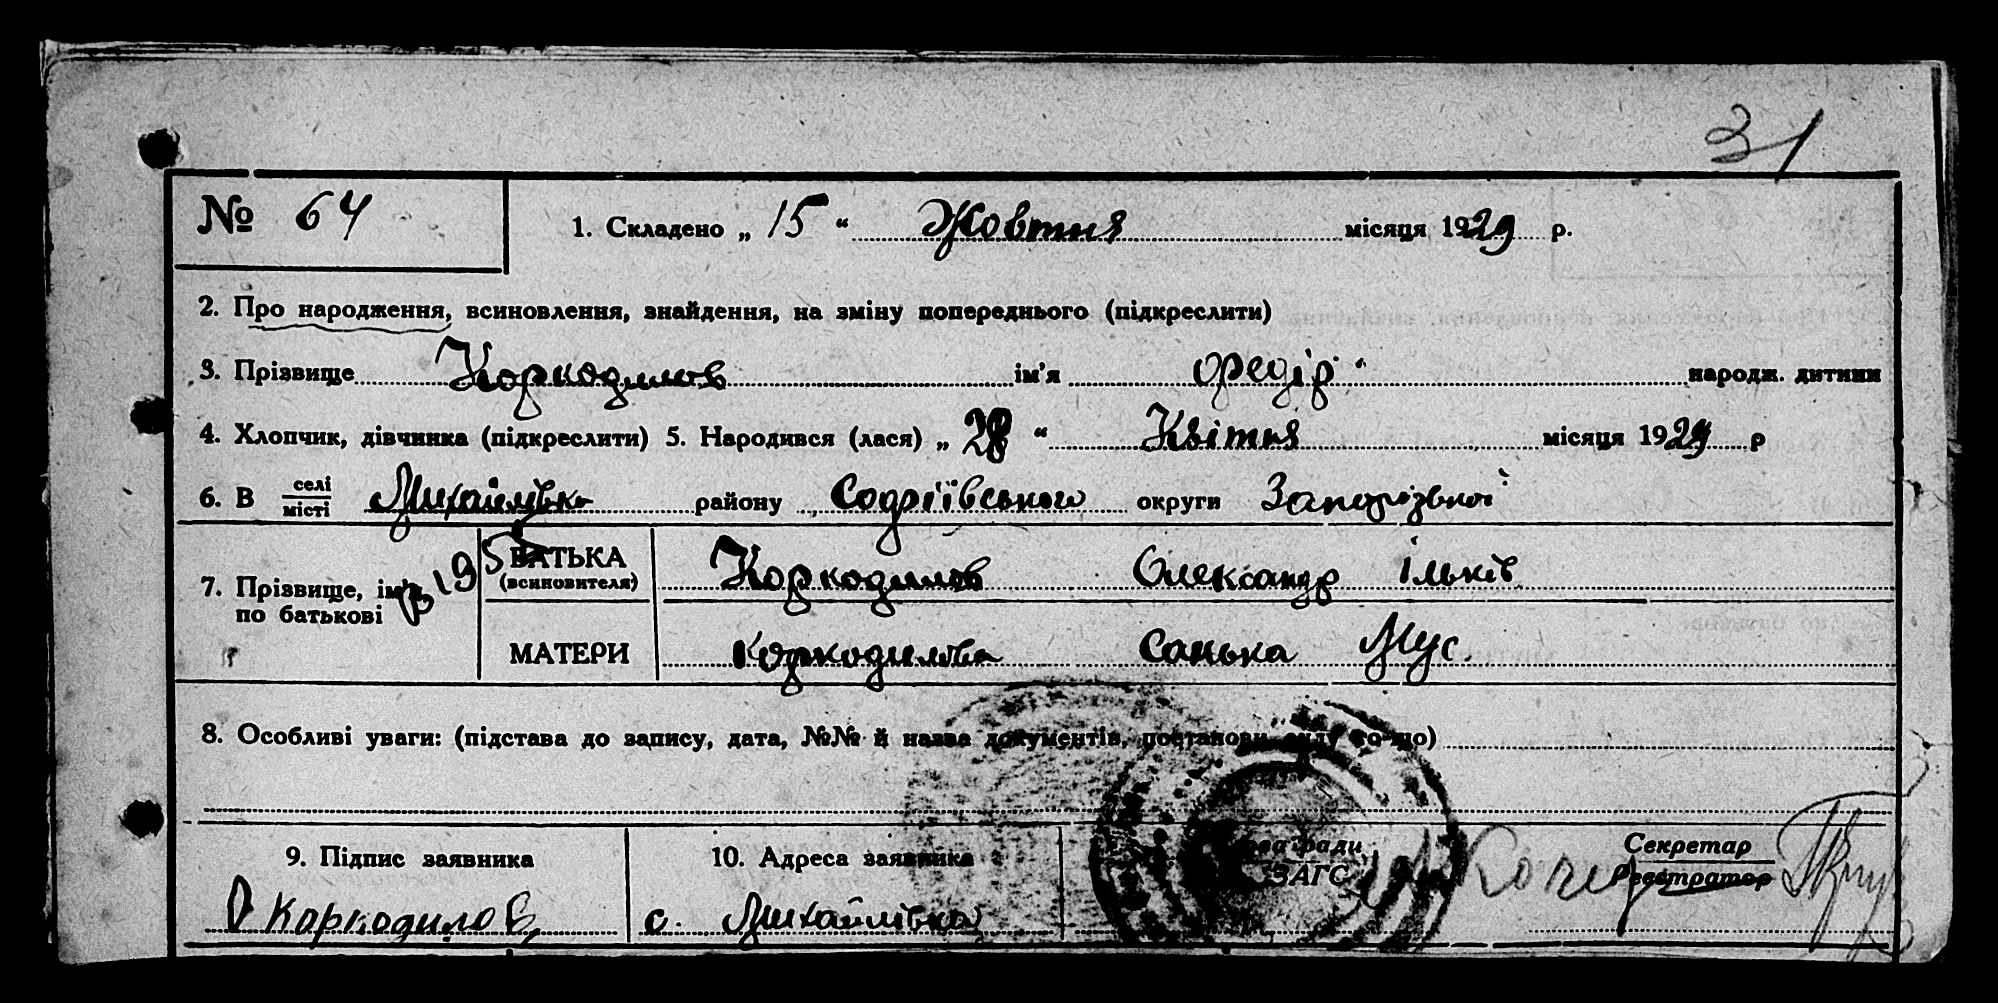 31
№ 64 1. Складено „ 15 “ Жовтня місяця 1929 р.
2. Про народження, всиновлення, знайдення, на зміну попереднього (підкреслити)
3. Прізвище Коркодилов ім'я Федір народж. дитини
4. Хлопчик, дівчинка (підкреслити) 5. Народився (лася) „ 28 “ Квітня місяця 1929 р
6. В селі місті Михайлівка району Софіївського округи Запорізької
7. Прізвище, ім'я по батькові БАТЬКА (всиновителя) Коркодилов Олександр Ільків
МАТЕРИ Коркодилова Санька Мус.
8. Особливі уваги: (підстава до запису, дата, №№ й назва документів, постанови суду то-що)
9. Підпис заявника 10. Адреса заявника Голова ради ЗАГС Секретар Реєстратор
Коркодилов с. Михайлівка